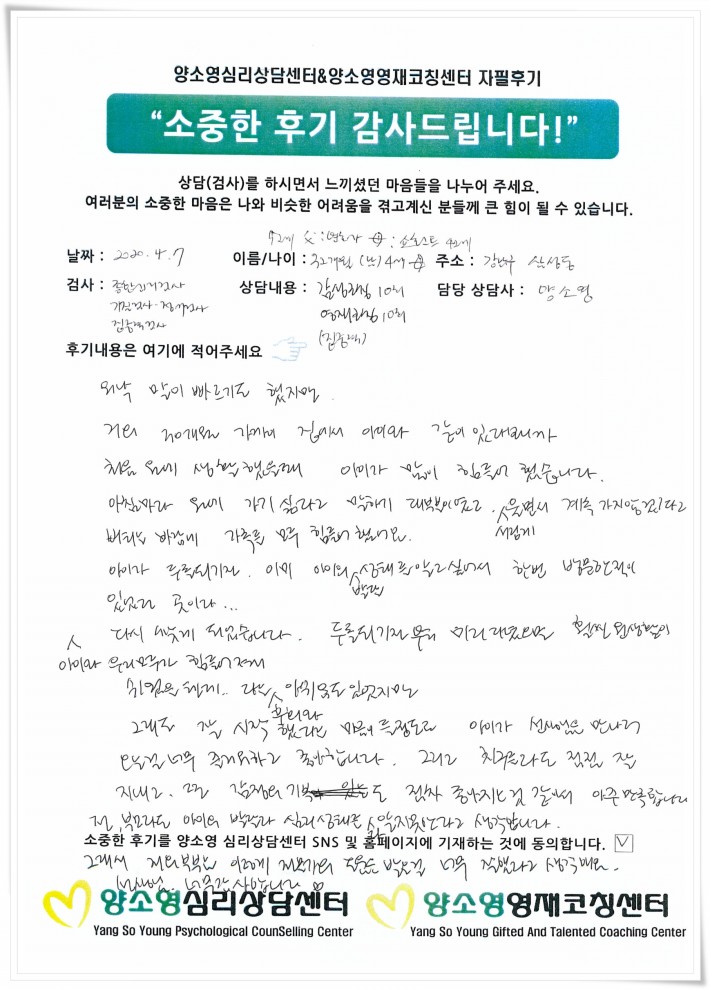 양소영심리상담센터&양소영영재코칭센터 자필후기
“소중한 후기 감사드립니다!”
상담(검사)를 하시면서 느끼셨던 마음들을 나누어 주세요.
여러분의 소중한 마음은 나와 비슷한 어려움을 겪고계신 분들께 큰 힘이 될 수 있습니다.
42세 父: 변호사 母: 42세
날짜 : 2020.4.7 이름/나이 : 32개월 (남) 4세 주소 : 강남구 삼성동
검사 : 종합심리검사 상담내용 : 감성코칭 10회 담당 상담사 : 양소영
기질검사 영재코칭 10회
집중력검사 (집중력)
후기내용은 여기에 적어주세요
워낙 말이 빠르기도 했지만.
거의 20개월 가까이 집에서 아이와 같이 있다보니까
처음 원에 생활했을때 아이가 많이 힘들어 했습니다.
아침마다 원에 가기 싫다고 말하기 대부분이었고. 울면서 계속 가지않겠다고
서럽게
버티는 바람에 가족들 모두 힘들어 했어요.
아이가 두돌되기전. 이미 아이의 상태를 알고싶어서 한번 방문한적이
발달
있었던 곳이라...
다시 찾게 되었습니다. 두돌되기전부터 미리 다녔으면 훨씬 원생활이
아이와 우리모두가 힘들어져서
쉬웠을텐데.. 라는 아쉬움도 있었지만
후회와
그래도 잘 시작했다는 마음이 들정도로 아이가 선생님을 만나러
오는걸 너무 즐거워하고 좋아합니다. 그리고 친구들과도 점점 잘
지내고. 또 감정의 기복도 점차 좋아지는것 같아서 아주 만족합니다
전, 부모라도 아이의 발달과 심리상태를 알지못한다고 생각합니다.
소중한 후기를 양소영 심리상담센터 SNS 및 홈페이지에 기재하는 것에 동의합니다. ☑
그래서 저희부부는 이렇게 전문가의 도움을 받는걸 너무 잘했다고 생각해요.
선생님. 너무감사합니다 ♡
양소영심리상담센터 양소영영재코칭센터
Yang So Young Psychological CounSelling Center Yang So Young Gifted And Talented Coaching Center